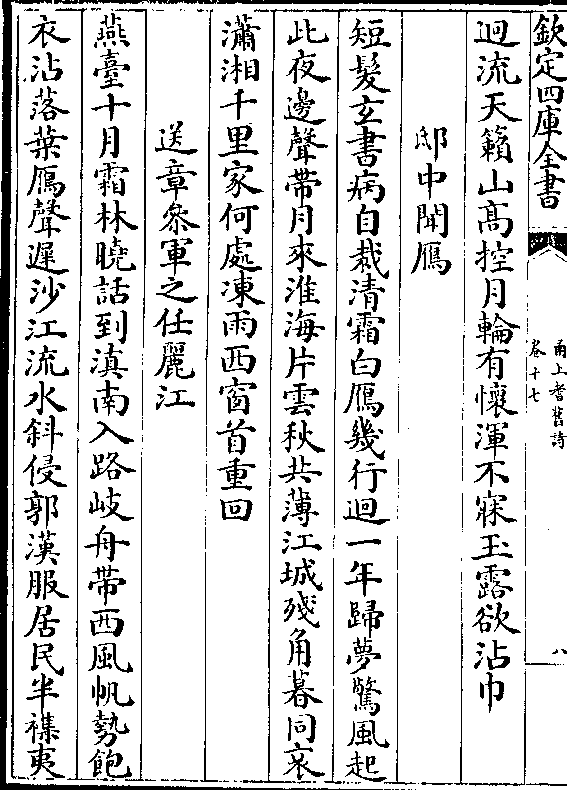 欽定四庫全書
甬上耆舊詩
卷十七
八
迥流天籟山髙控月輪有懷渾不寐玉露欲沾巾
邸中聞鴈
短髮玄書病自裁清霜白鴈幾行迴一年歸夢驚風起
此夜邊聲帶月來淮海片雲秋共薄江城殘角暮同哀
瀟湘千里家何處凍雨西窗首重回
送章叅軍之任麗江
燕臺十月霜林曉話到滇南入路岐舟帶西風帆勢飽
衣沾落葉鴈聲遲沙江流水斜侵郭漢服居民半襍夷